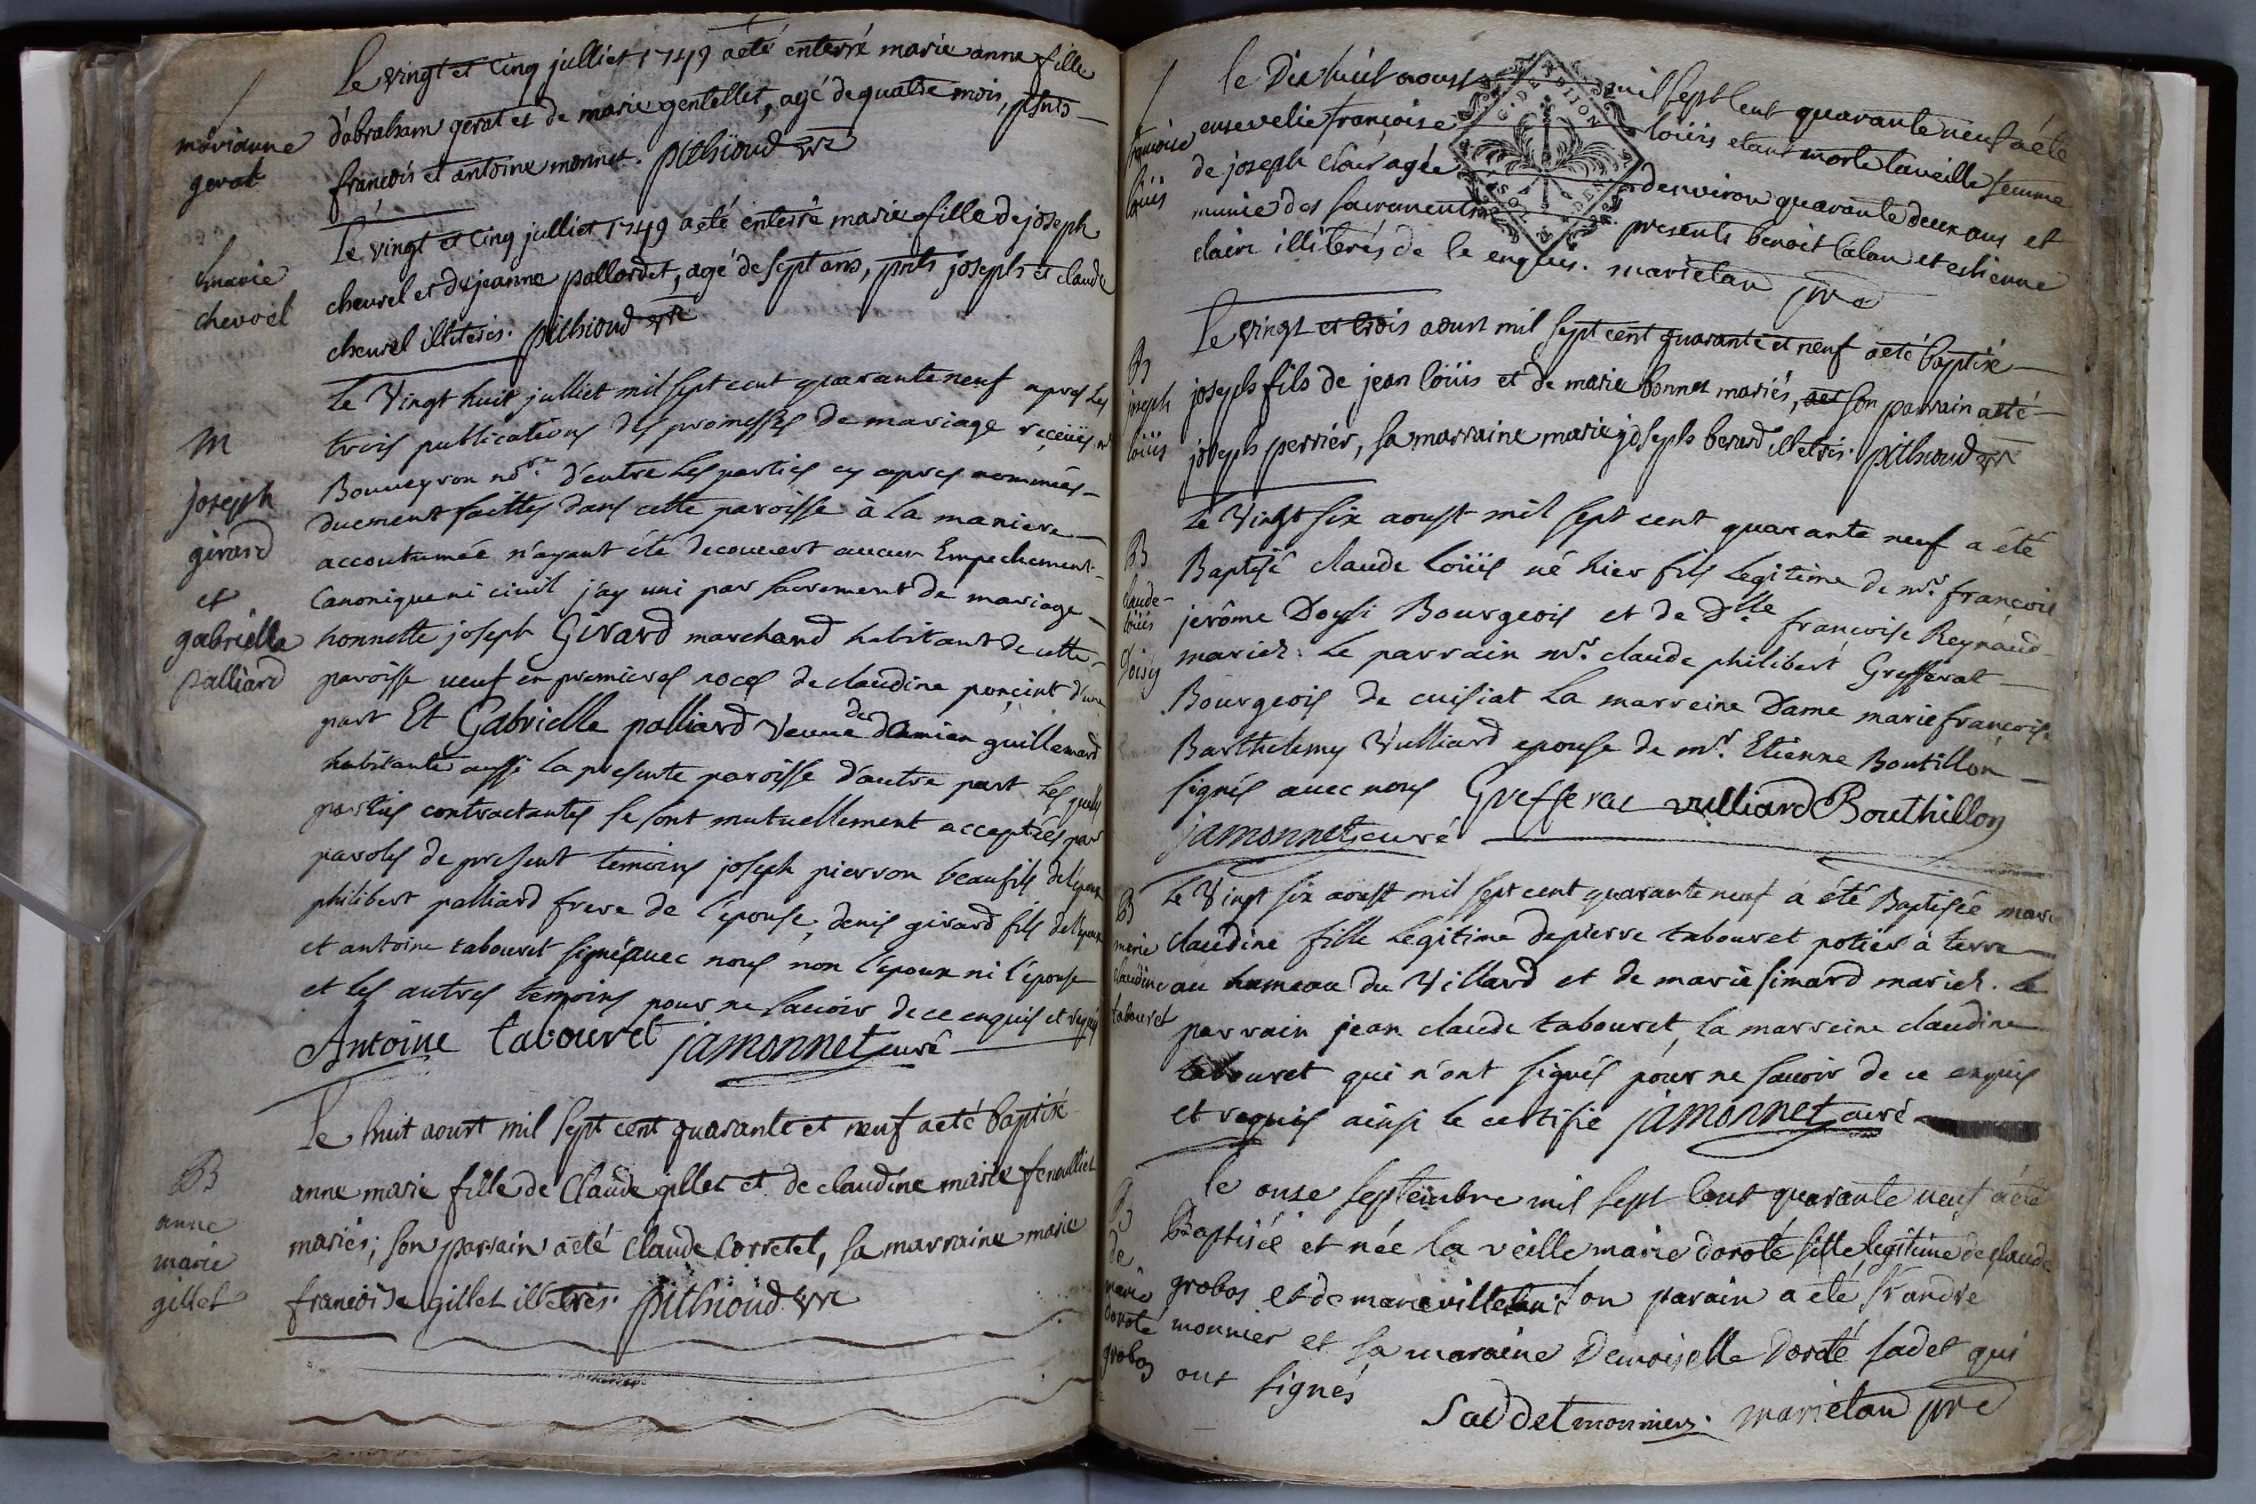 Le vingt et cinq julliet 1749 a eté enterré marie anne fille
d'abraham gerat et de marie gentellet, agé de quattre mois, psnts
françois et antoine monnet. pithioud ptre
marianne
gerat
Le vingt et cinq julliet 1749 a eté enterré marie fille de joseph
chevrel et de jeanne pallordet, agé de sept ans, pnts joseph et claude
chevrel illiterés. pithioud ptre
marie
chevrel
Le Vingt huit julliet mil sept cent quarante neuf apres les
trois publications des promesses de mariage reçeües
Bouveyron no.re d'entre les parties cy apres nommées
duement faittes dans cette paroisse à la maniere
accoutumée n'ayant été decouvert aucun Empechement
Canonique ni civil j'ay uni par sacrement de mariage
honnette joseph Girard marchand habitant de cette
paroisse veuf en premieres noces de claudine ponçint d'une
part Et Gabrielle palliard Veuve de damien guillemard
habitante aussi la presente paroisse d'autre part Les quelles
parties contractantes se sont mutuellement acceptées par
paroles de present temoins joseph pierron beaufils de l'epoux
philibert palliard frere de l'epouse, denis girard fils de l'epoux
et antoine tabouret signé avec nous non l'epoux ni l'epouse
et les autres temoins pour ne sauoir de ce enquis et requis
Antoine tabouret jamonnet curé
M
joseph
girard
et
gabrielle
palliard
Le huit aoust mil sept cent quarante et neuf a eté baptisé
anne marie fille de Claude gillet et de claudine marie fenoulliet
mariés; son parrain a eté Claude Corretet, sa marraine marie
françoise gillet illetrés. pithioud ptre
B
anne
marie
gillet
le Dix huit aoust mil sept Cent quarante neuf a été
ensevelie françoise loüis etant morte la veille femme
de joseph Clair agée d'environ quarante deux ans et
munie des sacrements presents benoit Calan et estienne
claire illiterés de le enquis. marietan ptre
françoise
loüis
Le vingt et trois aoust mil sept cent quarante et neuf a eté baptisé
joseph fils de jean loüis et de marie bonnet mariés, son parrain a eté
joseph perrier, sa marraine marie joseph berard illetrés. pithioud ptre
B
joseph
loüis
Le Vingt six aoust mil sept cent quarante neuf a été
Baptisé claude Loüis né hier fils legitime de mr. françois
jerôme Doysi Bourgeois et de Dlle françoise Reynaud
mariés. Le parrain mr. claude philibert Grefferat
Bourgeois de cuisiat La marreine Dame marie françoise
Barthelemy Vulliard epouse de mr. Etienne Boutillon
signés avec nous Grefferat vulliard Bouthillon
jamonnet curé
B
claude
loüis
Doisy
Le Vingt six aoust mil sept cent quarante neuf a été Baptisée marie
claudine fille legitime de pierre tabouret potier à terre
au hameau du Villard et de marie simard mariés. Le
parrain jean claude tabouret, la marreine claudine
tabouret qui n'ont signés pour ne sauoir de ce enquis
et requis ainsi le certifie jamonnet curé
B
marie
claudine
tabouret
le onse septembre mil sept Cent quarante neuf a été
Baptisée et née la veille marie doroté fille legitime de claude
grobos et de marie villetan son parain a été sr andré
monnier et sa maraine Demoiselle Doroté sadet qui
ont signés
Saddet monnier. marietan ptre
B
de
marie
doroté
grobos